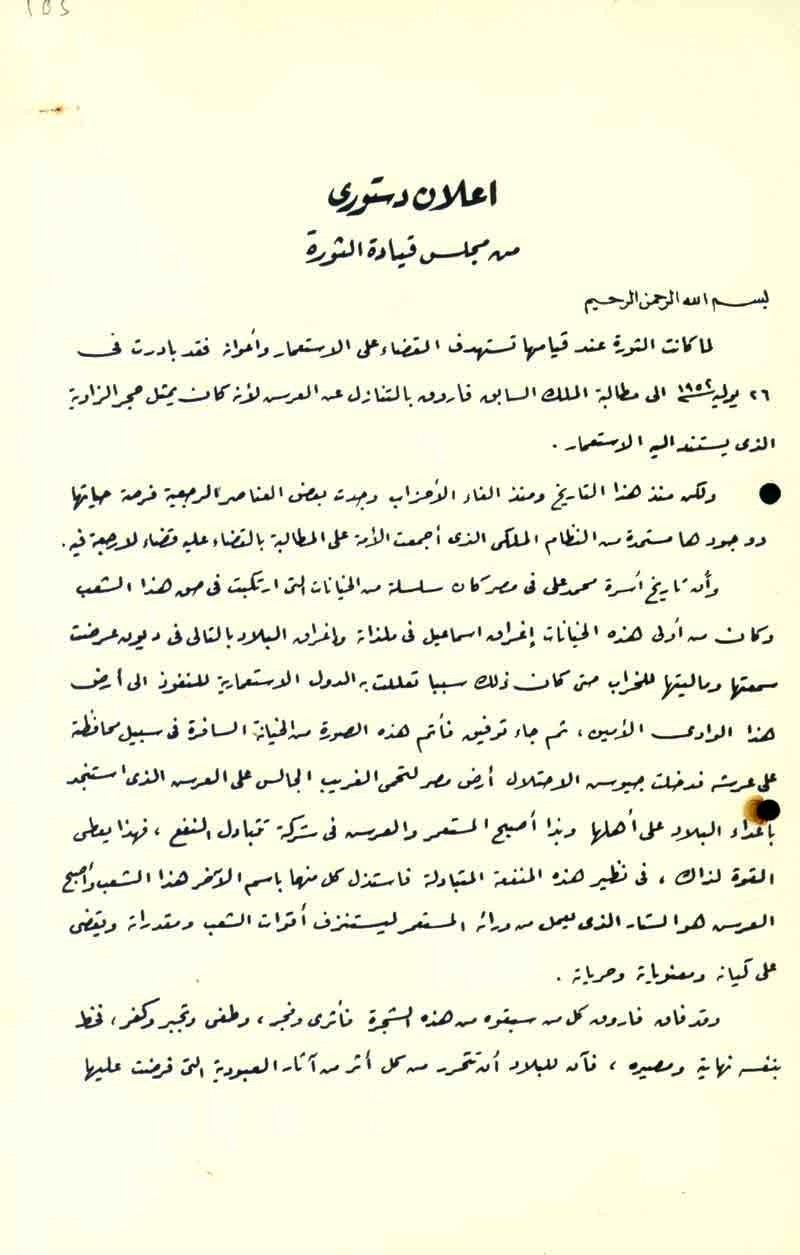 اعلان دستورى
من مجلس قيادة الثورة
بسم الله الرحمن الرحيم
لما كانت الثورة عند قيامها تستهدف القضاء على الاستعمار وأعوانه فقد بادرت فى
٢٦ يوليه ١٩٥٢ الى مطالبة الملك السابق فاروق بالتنازل عن العرش لأنه كان يمثل حجر الزاوية
الذى يستند اليه الاستعمار .
ولكن منذ هذا التاريخ ومنذ الغاء الأحزاب وجدت بعض العناصر الرجعية فرصة حياتها
ووجودها مستمدة من النظام الملكى الذى أجمعت الأمة على المطالبة بالقضاء عليه قضاء لا رجعة فيه .
وأن تاريخ أسرة محمد على فى مصر كان سلسلة من الخيانات التى ارتكبت فى حق هذا الشعب
وكان من أولى هذه الخيانات إغراق اسماعيل فى ملذاته واغراق البلاد بالتالى فى ديون عرضت
سمعتها وماليتها للخراب حتى كان ذلك سببا تعللت به الدول الاستعمارية للنفوذ الى أرض
هذا الوادى الأمين ، ثم جاء توفيق فأتم هذه الصورة من الخيانة السافرة فى سبيل محافظته
على عرشه فدخلت جيوش الاحتلال أرض مصر لتحمى الغريب الجالس على العرش الذى استنجد
بأعداء البلاد على أهلها وبذا أصبح المستعمر والعرش فى شركة تتبادل النفع ، فهذا يعطى
القوة لذاك ، فى نظير هذه المنفعة المتبادلة فاستذل كل منهما باسم الآخر هذا الشعب وأصبح
العرش هو الستار الذى يعمل من ورائه المستعمر ليستنزف أقوات الشعب ومقدراته ويقضى
على كيانه ومعنوياته وحرياته .
وقد فاق فاروق كل من سبقوه من هذه الشجرة فأثرى وفجر ، وطغى وتجبر وكفر ، فخط
بنفسه نهايته ومصيره ، فآن للبلاد أن تتحرر من كل أثر من آثار العبودية التى فرضت عليها